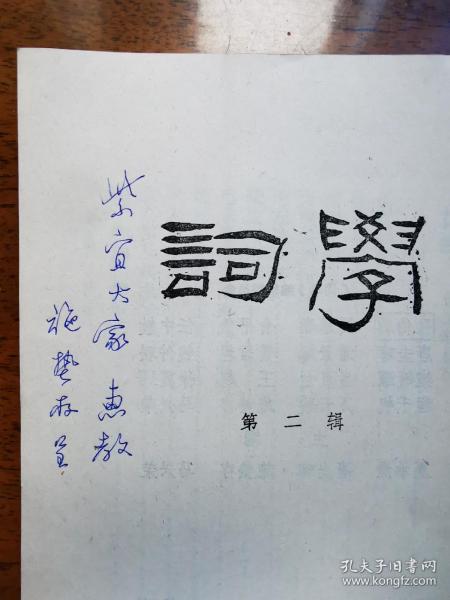 詞學
第二辑
紫宜大家 惠教
施蟄存呈
孔夫子旧书网
www.kongfz.com